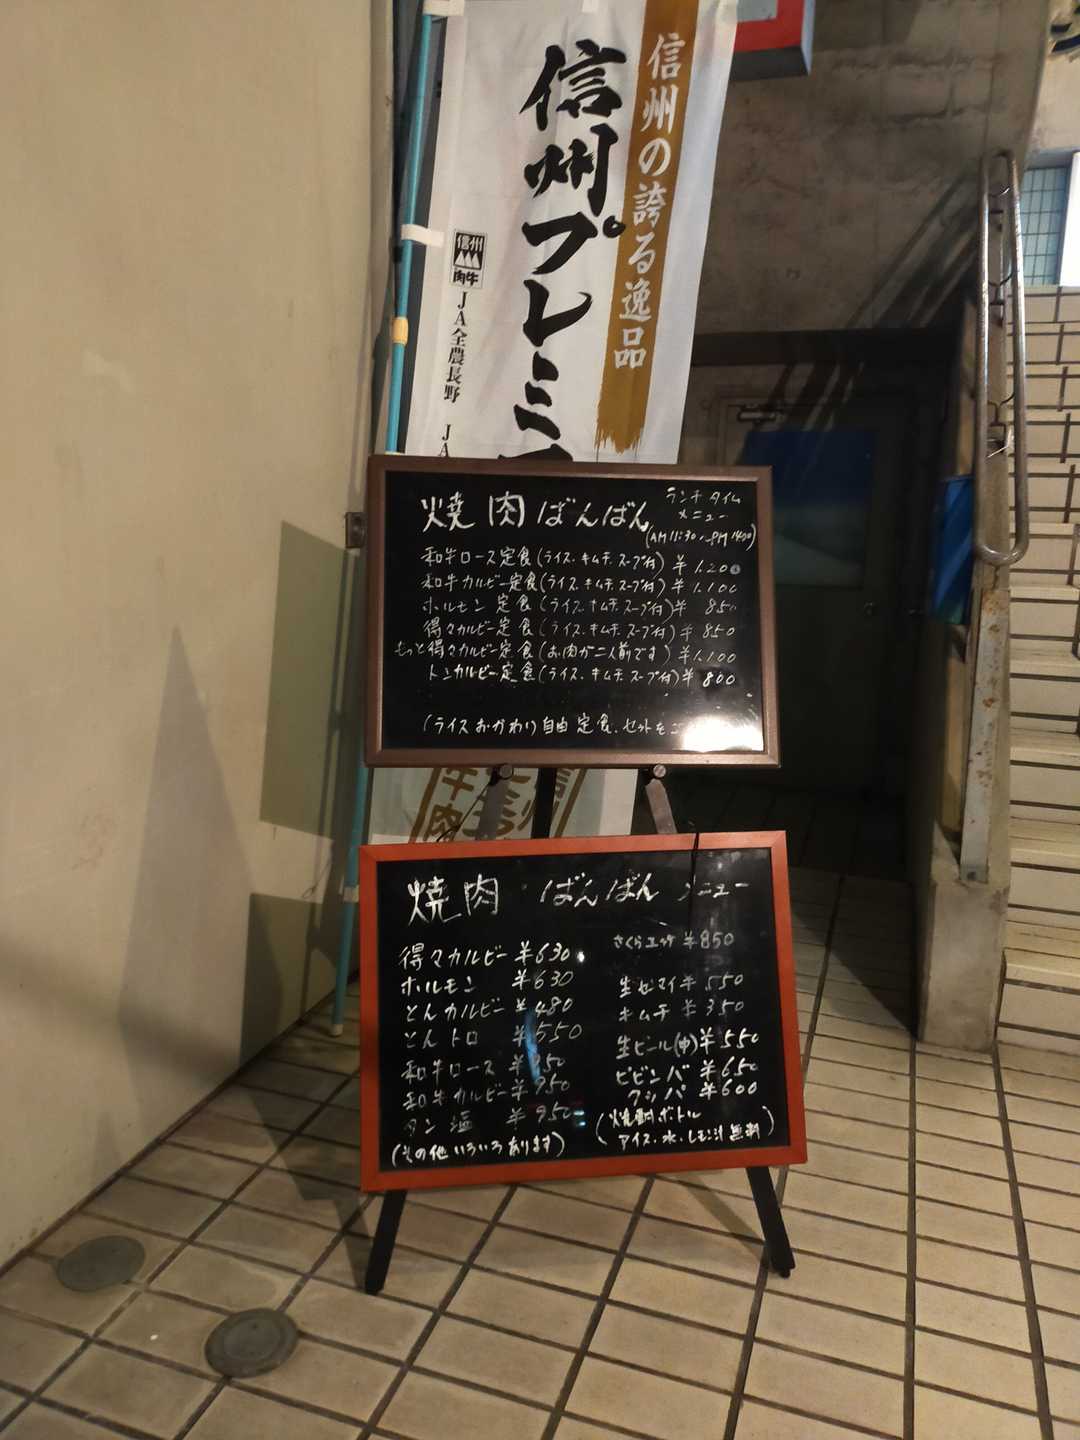 信州の誇る逸品
信州プレミア
信州
肉牛
JA全農長野 JA
焼肉ばんばん
ランチタイム
メニュー
(AM11:30〜PM14:00)
和牛ロース定食(ライス、キムチ、スープ付) ¥1,200
和牛カルビー定食(ライス、キムチ、スープ付) ¥1,100
ホルモン定食(ライス、キムチ、スープ付) ¥850
得々カルビー定食(ライス、キムチ、スープ付) ¥850
もっと得々カルビー定食(お肉が二人前です) ¥1,100
トンカルビー定食(ライス、キムチ、スープ付) ¥800
(ライスおかわり自由 定食、セットを
牛肉
信州
焼肉 ばんばん メニュー
得々カルビー ¥630
ホルモン ¥630
とんカルビー ¥480
とんトロ ¥550
和牛ロース ¥950
和牛カルビー ¥950
タン塩 ¥950
(その他いろいろあります)
さくらユッケ ¥850
生センマイ ¥550
キムチ ¥350
生ビール(中) ¥550
ビビンバ ¥650
クッパ ¥600
(焼酎ボトル
アイス、水、レモン汁無料)